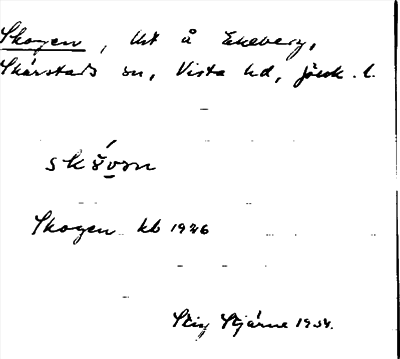 Skogen, lht å Ekeberg,
Skärstads sn, Vista hd, Jönk. l.
Skogen kb 1946
Stig Stjärne 1954.